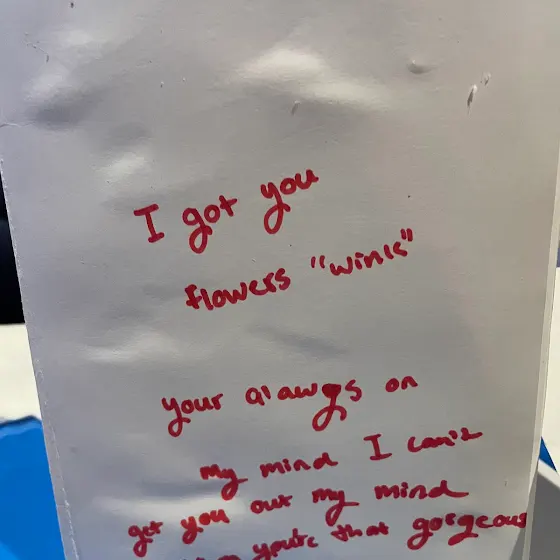 I got you
flowers "wink"
your alawys on
my mind I can't
get you out my mind
you're that gorgeous